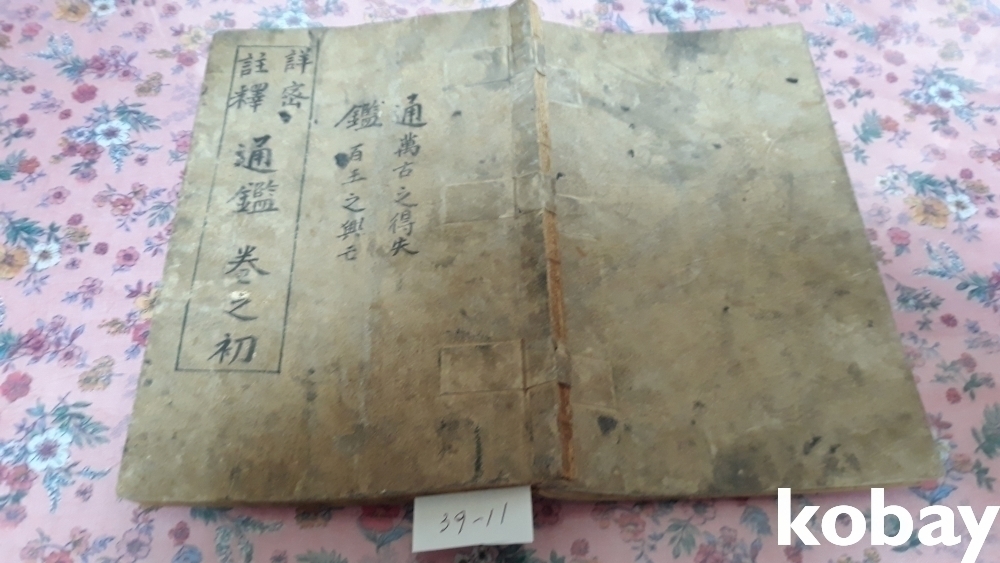 詳密
註釋
通鑑 卷之初
通萬古之得失
鑑百王之興亡
39-11
kobay